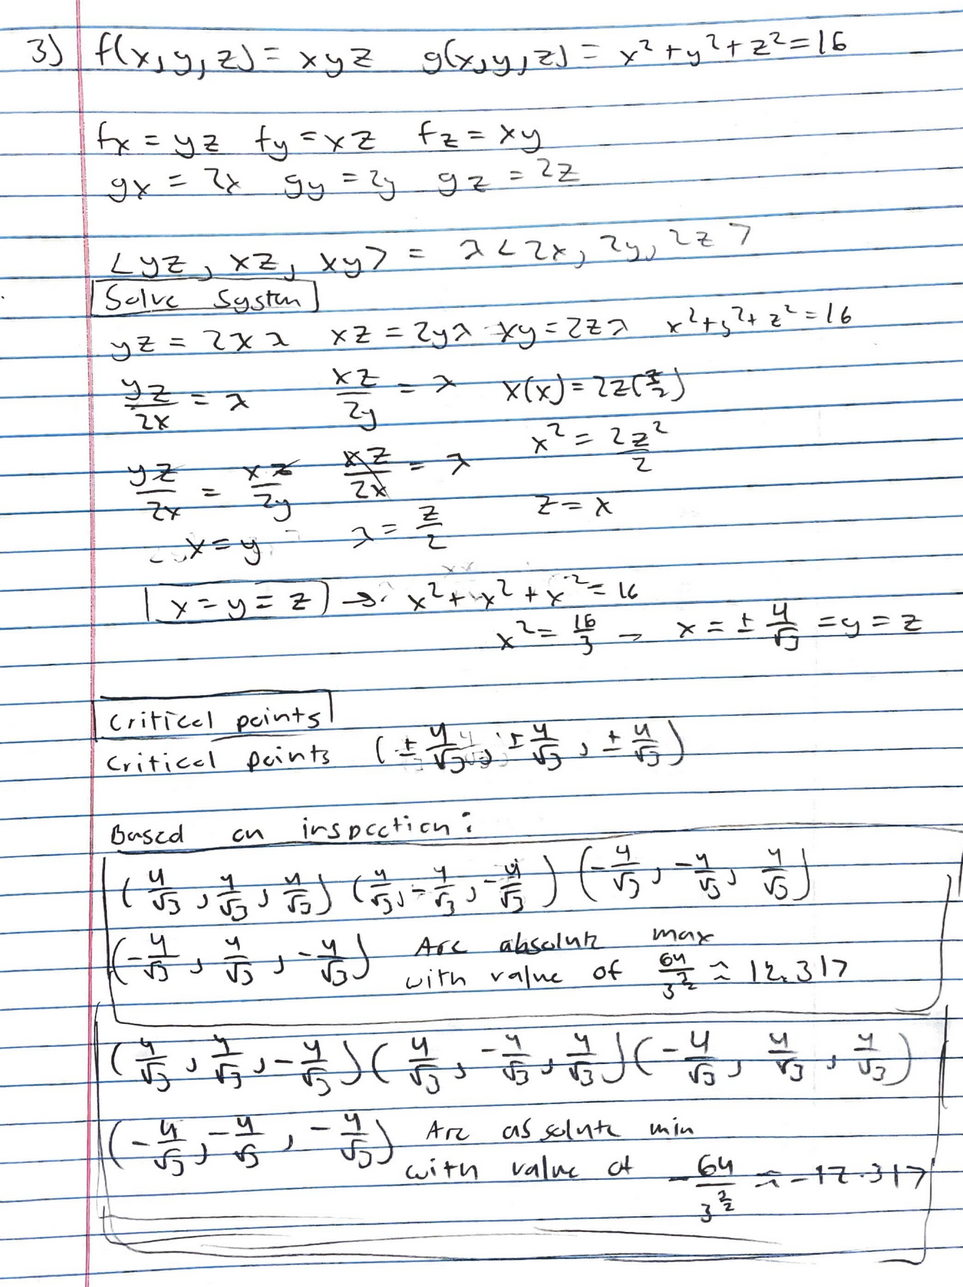 3) f(x,y,z) = xyz   g(x,y,z) = x²+y²+z²=16
fx = yz   fy = xz   fz = xy
gx = 2x   gy = 2y   gz = 2z
<yz, xz, xy> = λ<2x, 2y, 2z>
Solve System
yz = 2xλ   xz = 2yλ   xy = 2zλ   x²+y²+z²=16
yz/2x = λ   xz/2y = λ   x(x) = 2z(z/2)
yz/2x = xz/2y   xz/2x = λ   x² = 2z²/2
x=y   λ = z/2   z = x
x=y=z → x²+x²+x²=16
x² = 16/3 → x = ± 4/√3 = y = z
Critical points
Critical points (± 4/√3, ± 4/√3, ± 4/√3)
Based on inspection:
(4/√3, 4/√3, 4/√3) (4/√3, -4/√3, -4/√3) (-4/√3, -4/√3, 4/√3)
(-4/√3, 4/√3, -4/√3) Are absolute max
with value of 64/3^(3/2) ≈ 12.317
(4/√3, 4/√3, -4/√3) (4/√3, -4/√3, 4/√3) (-4/√3, 4/√3, 4/√3)
(-4/√3, -4/√3, -4/√3) Are absolute min
with value of -64/3^(3/2) ≈ -12.317